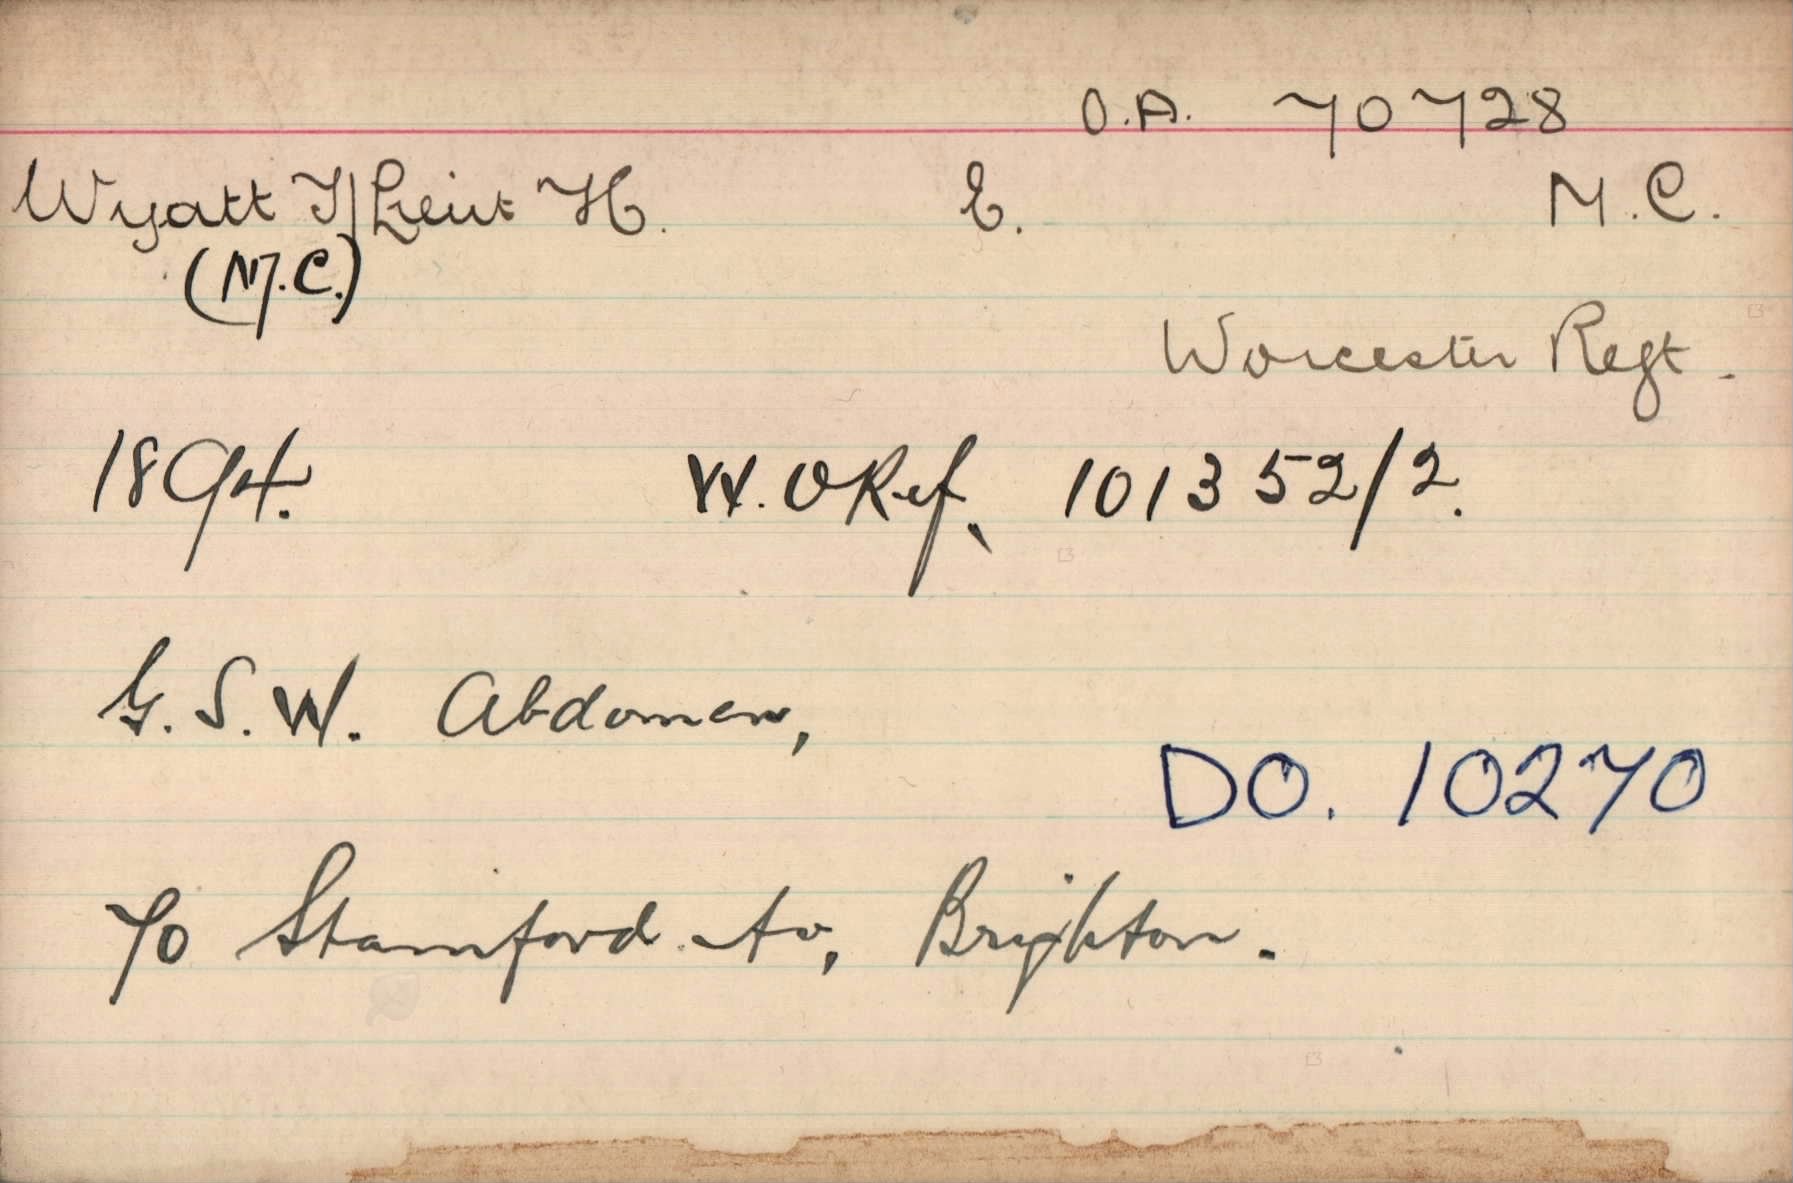 O.A. 70728
Wyatt T/Lieut H. E. M.C.
(M.C.)
Worcester Regt.
1894. W.O Ref. 101352/2.
G.S.W. Abdomen,
DO. 10270
70 Stamford Av, Brighton.